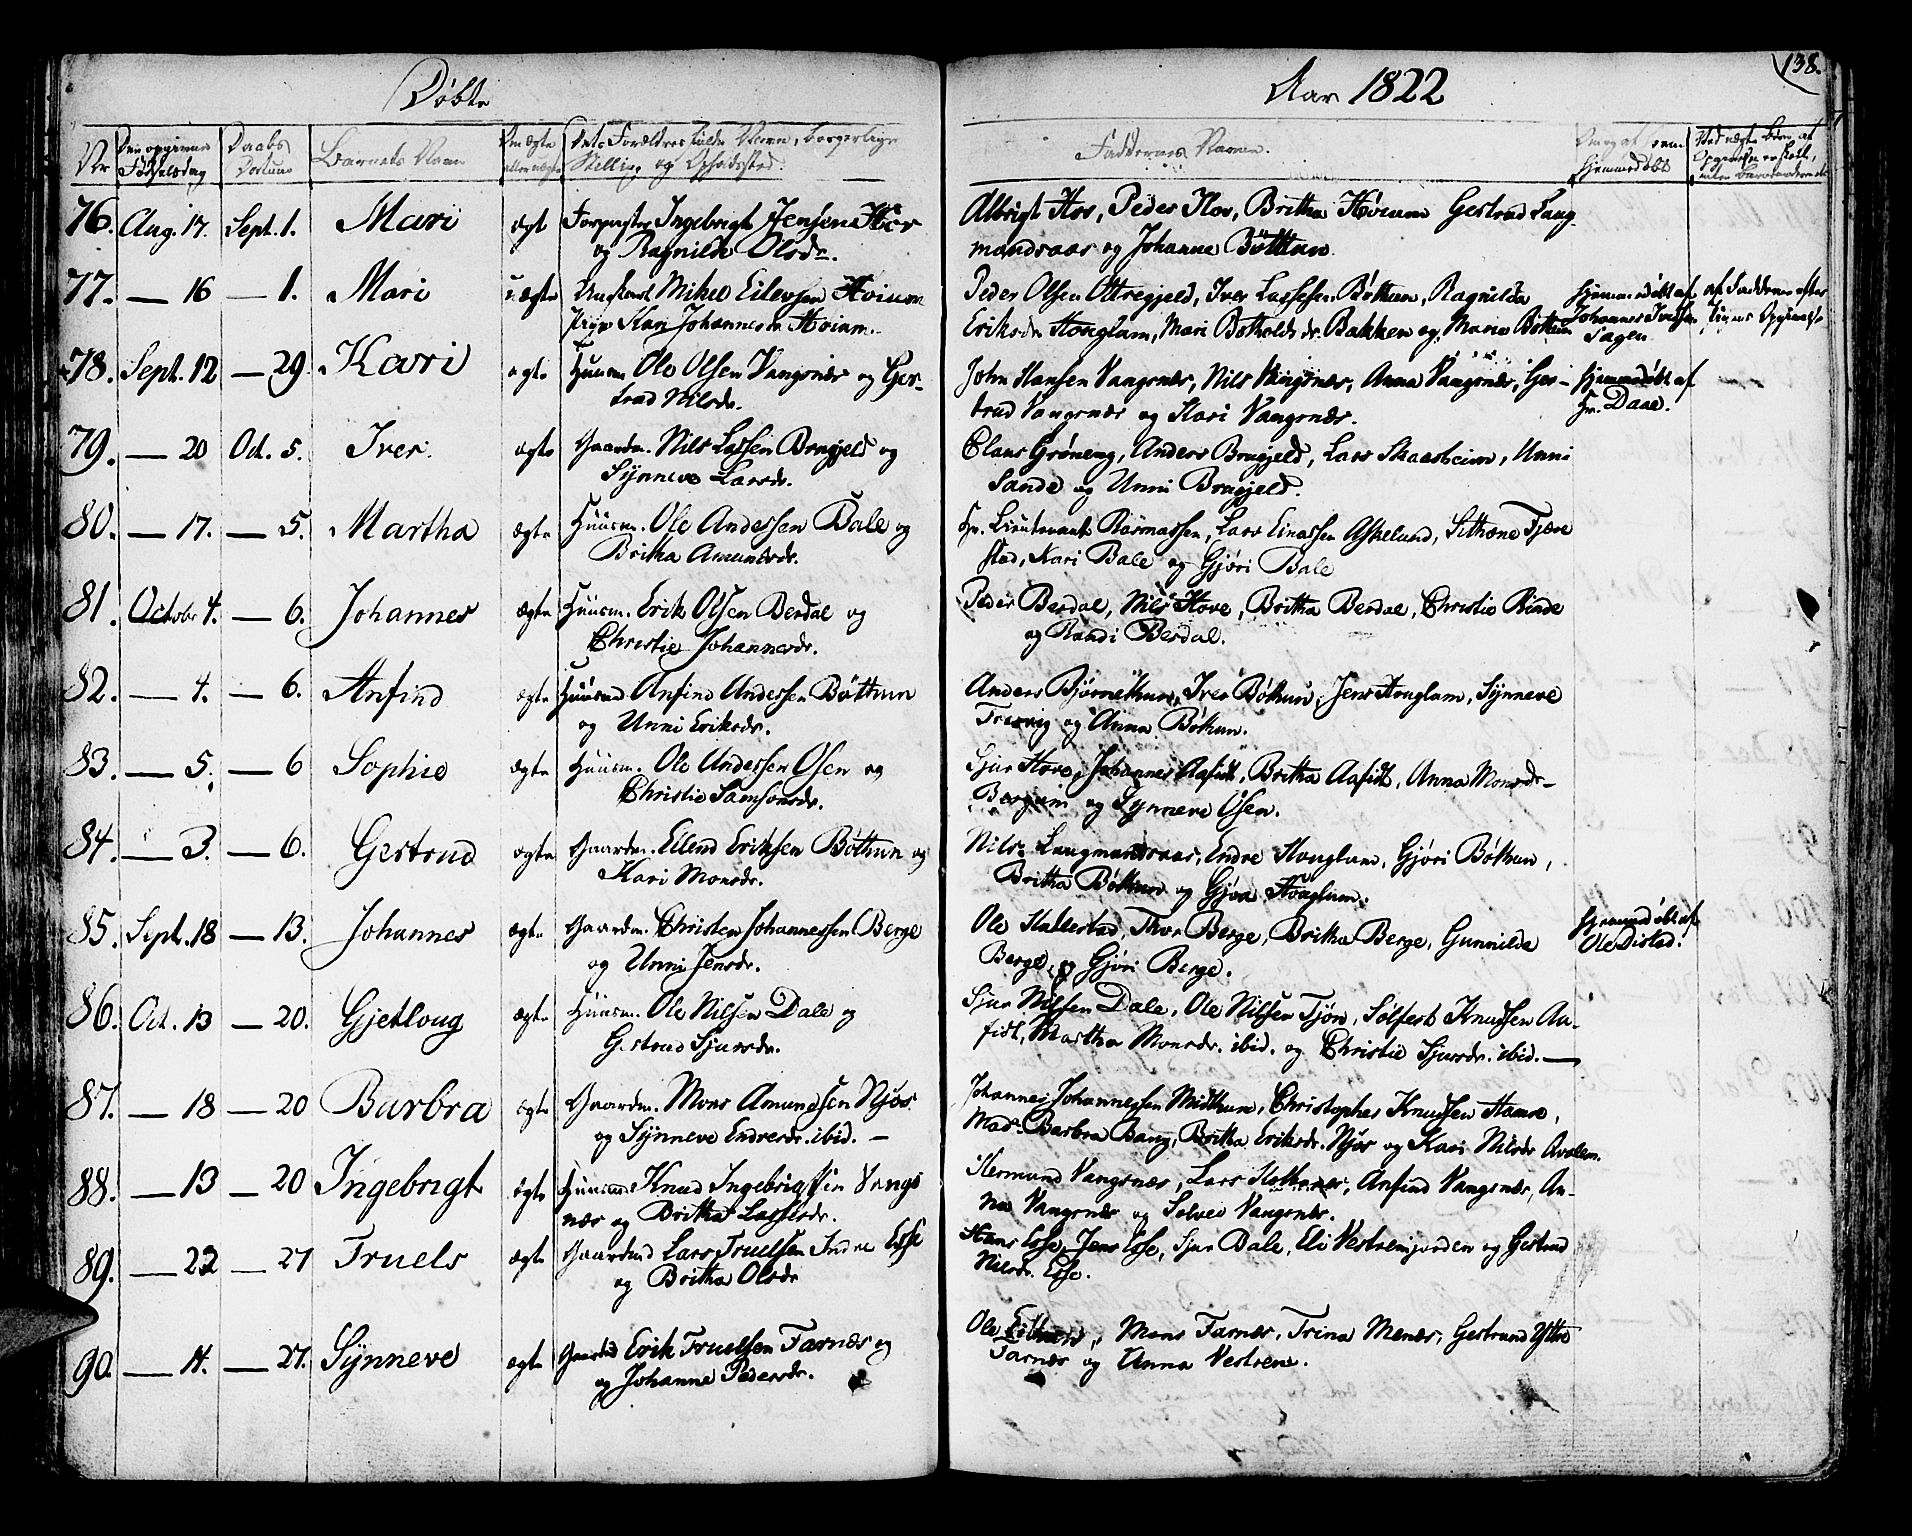 Døbte
Aar 1822
138.
Nr
Den opgivne Fødselsdag
Daabs Datum
Barnets Navn
Om ægte eller uægte
Dets Forældres fulde Navne, borgerlige Stilling og Opholdssted.
Faddernes Navne.
Om og af hvem hjemmedøbt
76. Aug. 17. Sept. 1. Mari ægte Ingebrigt Jensen Hov
og Ragnilde Olsdr.
Albrigt Hov, Peder Hov, Britha Høium Gertrud Laug
mandsaas og Johanne Bøttun
77. — 16 — 1. Mari uægte Ungkarl Mikel Eilevsen Høium
Pige Kari Johannesdr Høium.
Peder Olsen Ottregjeld, Iver Lassesen Bøthun, Ragnilda
Eriksdr Houglum, Mari Botholdsdr. Bakken og Marie Bøthun
hjemmedøbt af
Johannes Iversen
af Faddere efter
Pigens Opgivende
78. Sept. 12 — 29. Kari ægte Huusm. Ole Olsen Vangsnæs og Ger-
trud Nilsdr.
John Hansen Vangsnæs, Nils Vangsnæs, Anna Vangsnæs, Ger-
trud Vangsnæs og Kari Vangsnæs.
hjemmedøbt af
Hr. Daae.
79. — 20 Oct. 5. Iver. ægte Gaardm. Nils Lassen Bragjeld og
Synneve Larsdr.
Claus Grøneng, Anders Bragjeld, Lars Skaasheim, Unni
Sande og Unni Bragjeld.
80. — 17. — 5. Martha ægte Huusm. Ole Anderssen Bale og
Britha Amundsdr.
Hr. Lieutenant Rasmussen, Lars Einassen Askelund, Fjære
stad, Kari Bale og Gjøri Bale
81. Octobr 4. — 6. Johannes ægte Huusm. Erik Olsen Berdal og
Christie Johannesdr.
Peder Berdal, Nils Hove, Britha Berdal, Christie Rinde
og Randi Berdal.
82. — 4. — 6. Anfind ægte Huusmd. Anfind Anderssen Bøthun
og Unni Eriksdr.
Anders Bjørnethun, Iver Bøthun, Jens Houglum, Synneve
og Anna Bøthun.
83. — 5. — 6 Sophie ægte Huusm. Ole Anderssen Osen og
Christie Samsonsdr.
Sjur Hove, Johannes Aafidt, Britha Aafidt, Anna Monsdr-
og Synneve Osen.
84. — 3. — 6. Gertrud ægte Gaardm. Ellend Eriksen Bøthun og
Kari Monsdr.
Nils Laugmandsaas, Endre Houglum, Gjøri Bøthun,
Britha Bøthun og Gjøa Houglum.
85. Sept. 18 — 13. Johannes ægte Gaardm. Christen Johannessen Berge
og Unni Jensdr.
Ole Hallestad, Thor Berge, Britha Berge, Gunnilda
Berge, og Gjøri Berge.
hjemmedøbt af
Ole Distad.
86. Oct. 13 — 20. Gjetloug ægte Huusm. Ole Nilsen Dale og
Gertrud Sjursdr.
Sjur Nilssen Dale, Ole Nilsen Tjøn, Sølfest Knudsen Aa-
fidt, Martha Monsdr. ibid. og Christie Sjursdr. ibid. —
87. — 18 — 20 Barbra ægte Gaardm. Mons Amundsen Njøs
og Synneve Endresdr. ibid. —
Johannes Johannessen Midthun, Christopher Knudsen Hamre,
Mad. Barbra Bang, Britha Eriksdr. Njøs og Kari Nilsdr
88. — 13 — 20 Ingebrigt ægte Huusmd Knud Ingebrigtsen Vangs
næs og Britha Lassesdr.
Hermund Vangsnæs, Lars, Anfind Vangsnæs, An-
na Vangsnæs og Solvei Vangsnæs.
89. — 22 — 27 Truels ægte Gaardmd Lars Truelsen Indre Esse
og Britha Olsdr
Hans Esse, Jens Esse, Sjur Bale, Eli Vestreimjorden og Gertrud
Nilsdr. Esse.
90. — 14. — 27. Synneve ægte Gaardmd Erik Truelsen Farnæs og
og Johanne Pedersdr.
Ole, Mons Farnæs, Trina Menæs, Gertrud Yttre
Farnæs og Anna Vestrem.